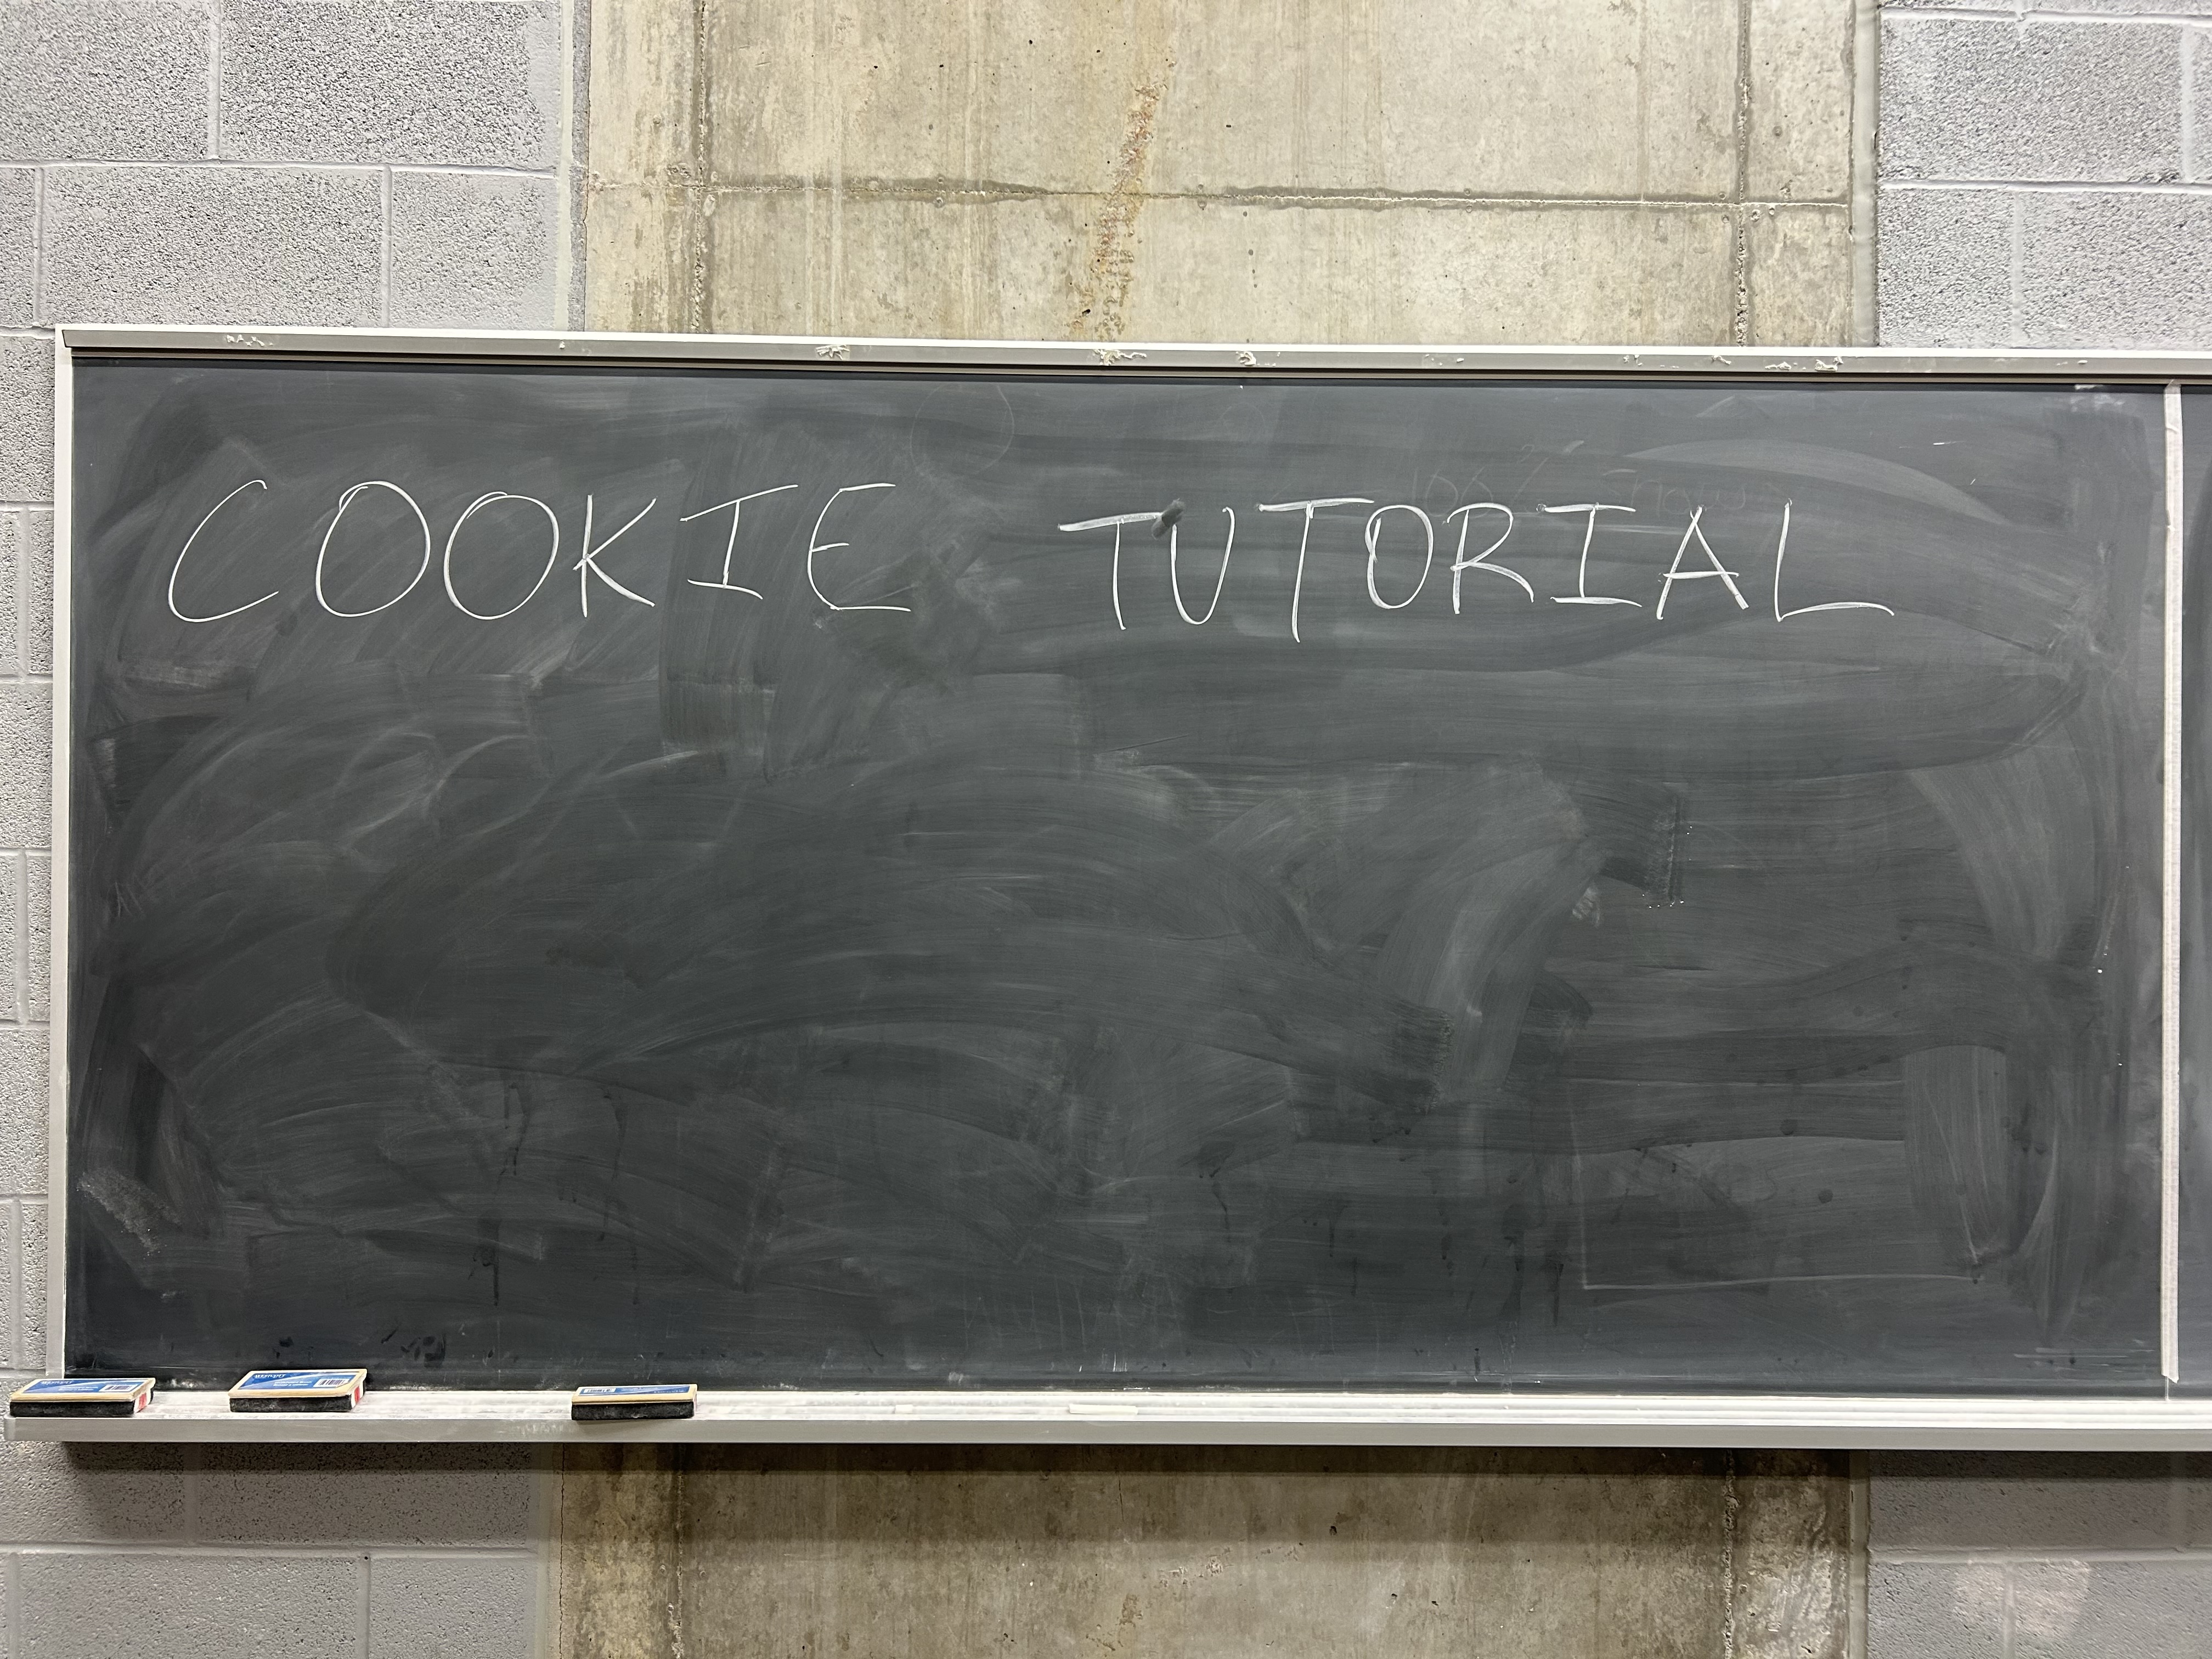 COOKIE TUTORIAL